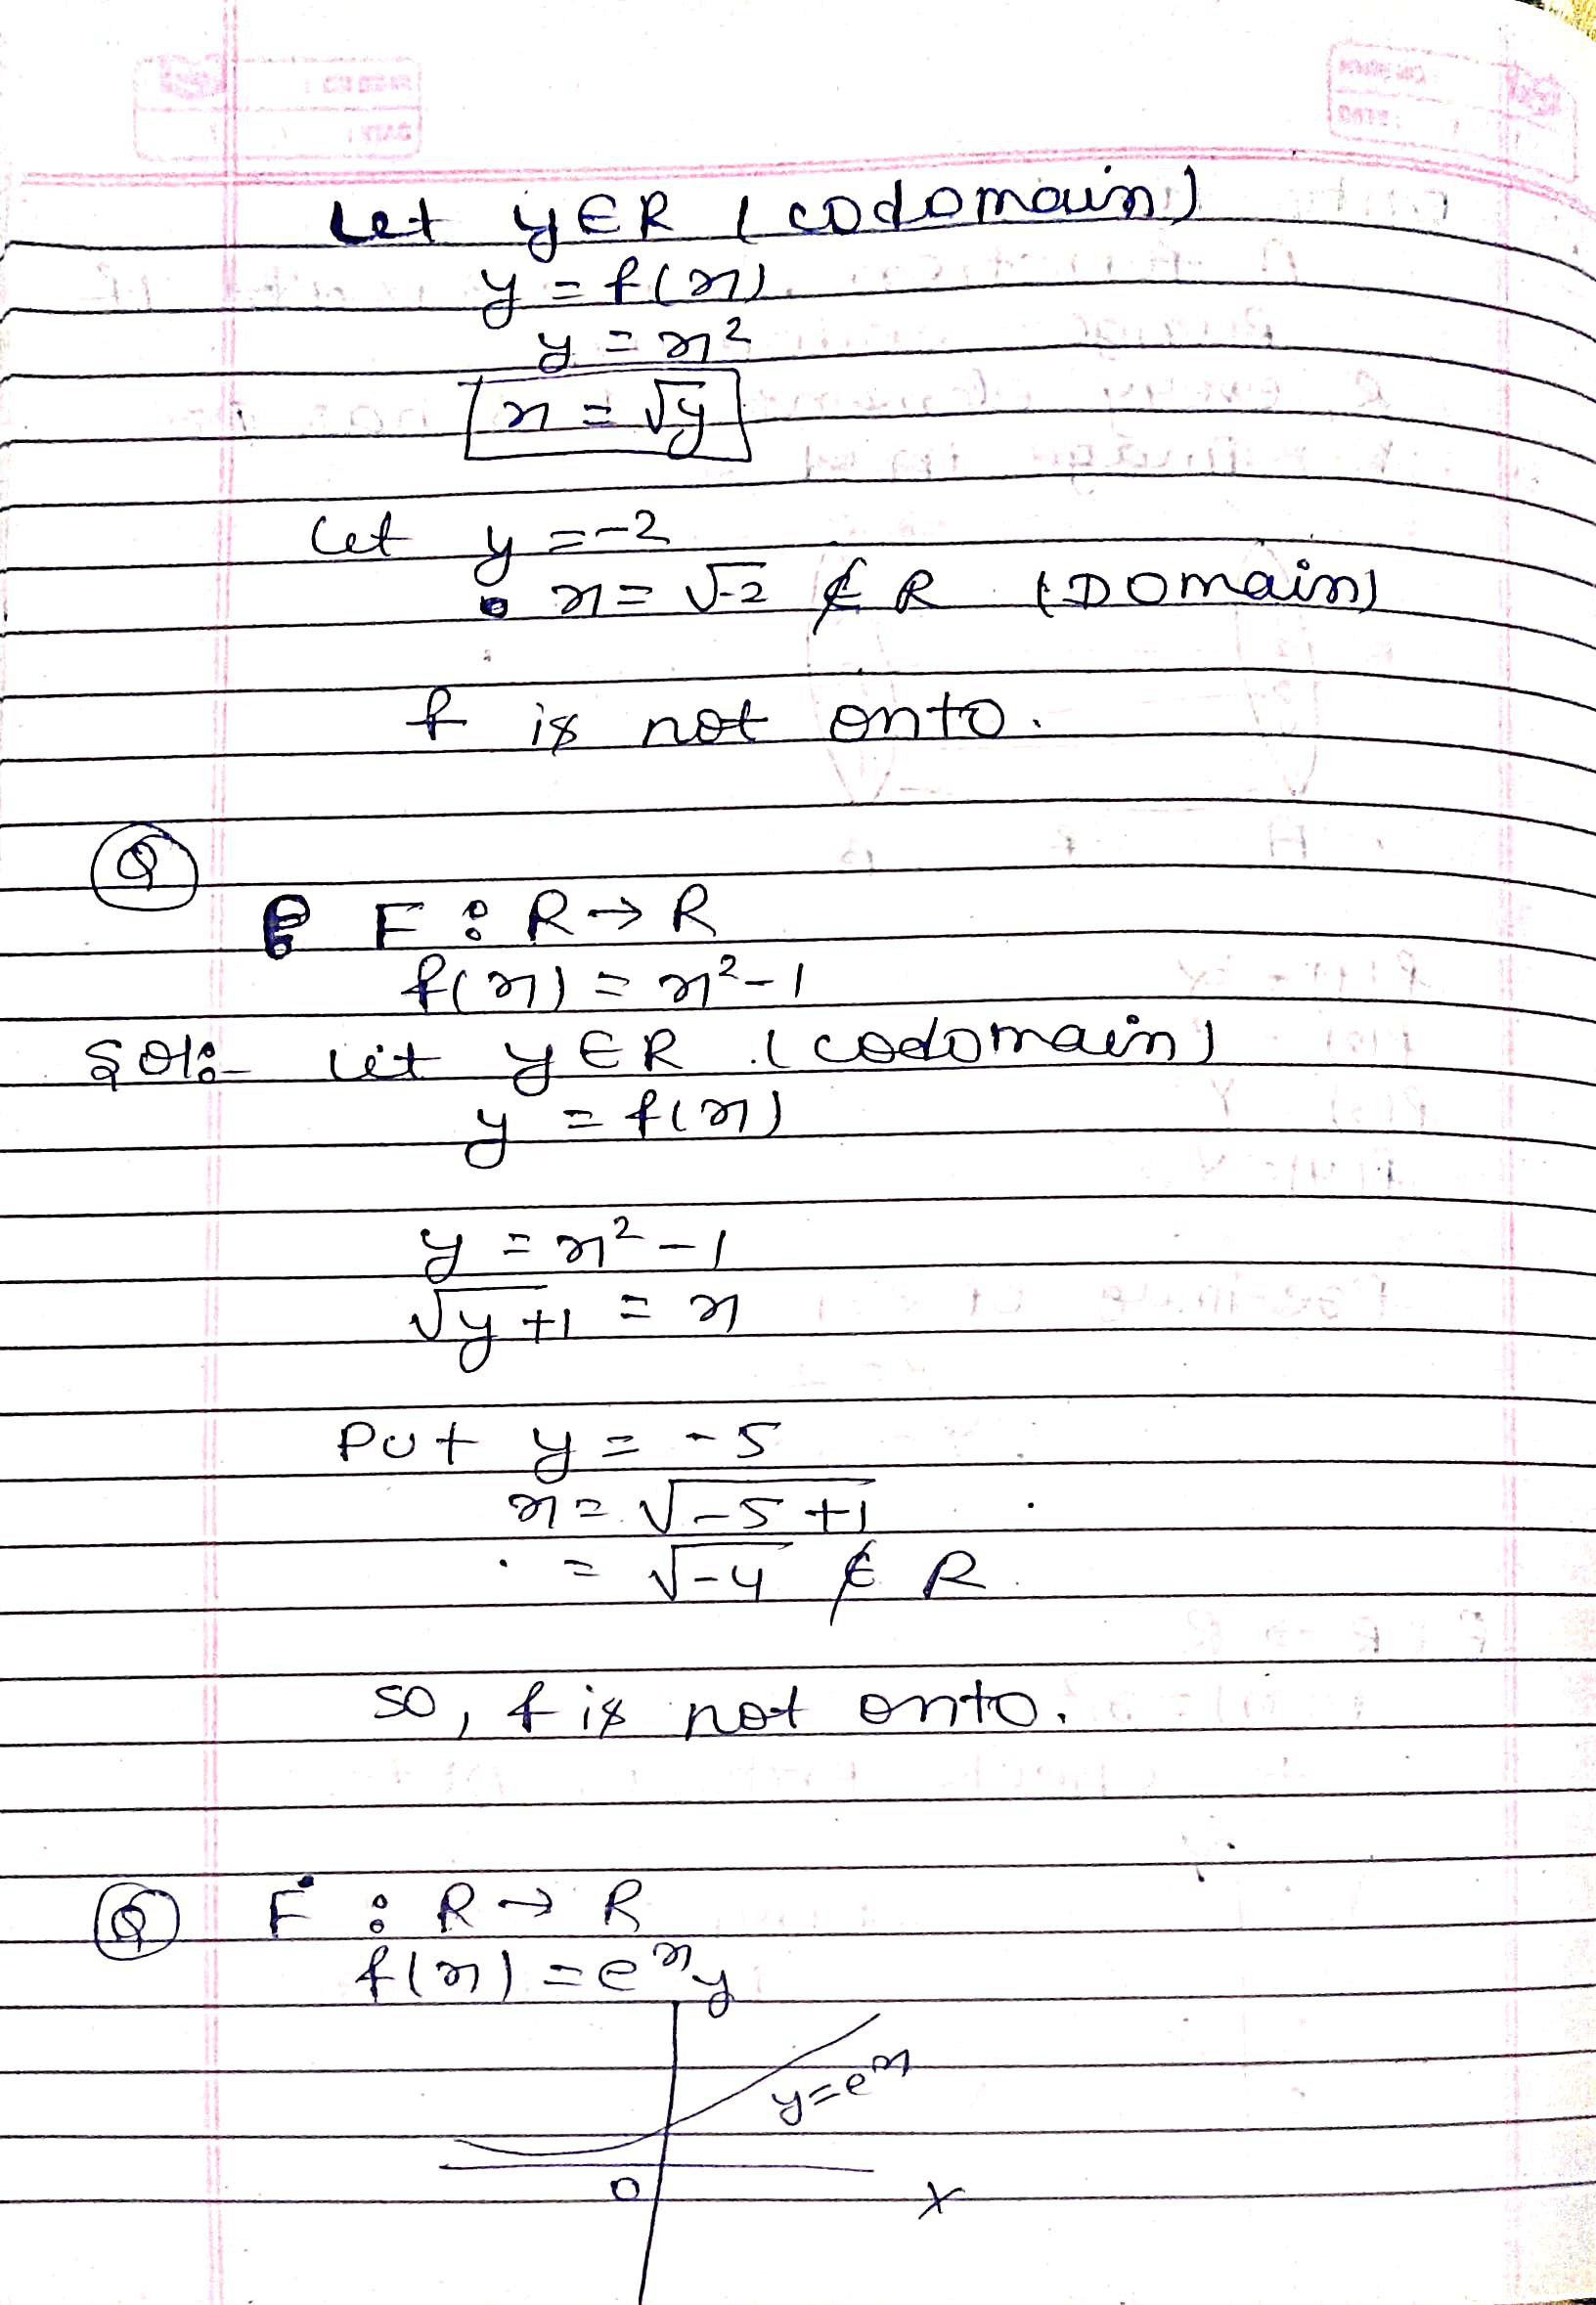 Let y ∈ R (codomain)
y = f(x)
y = x²
x = √y
Let y = -2
x = √-2 ∉ R (Domain)
f is not onto.
Q
F : R → R
f(x) = x² - 1
Sol:- Let y ∈ R (codomain)
y = f(x)
y = x² - 1
√y+1 = x
Put y = -5
x = √-5+1
= √-4 ∉ R
so, f is not onto.
Q F : R → R
f(x) = eˣ
y
y=eˣ
O X